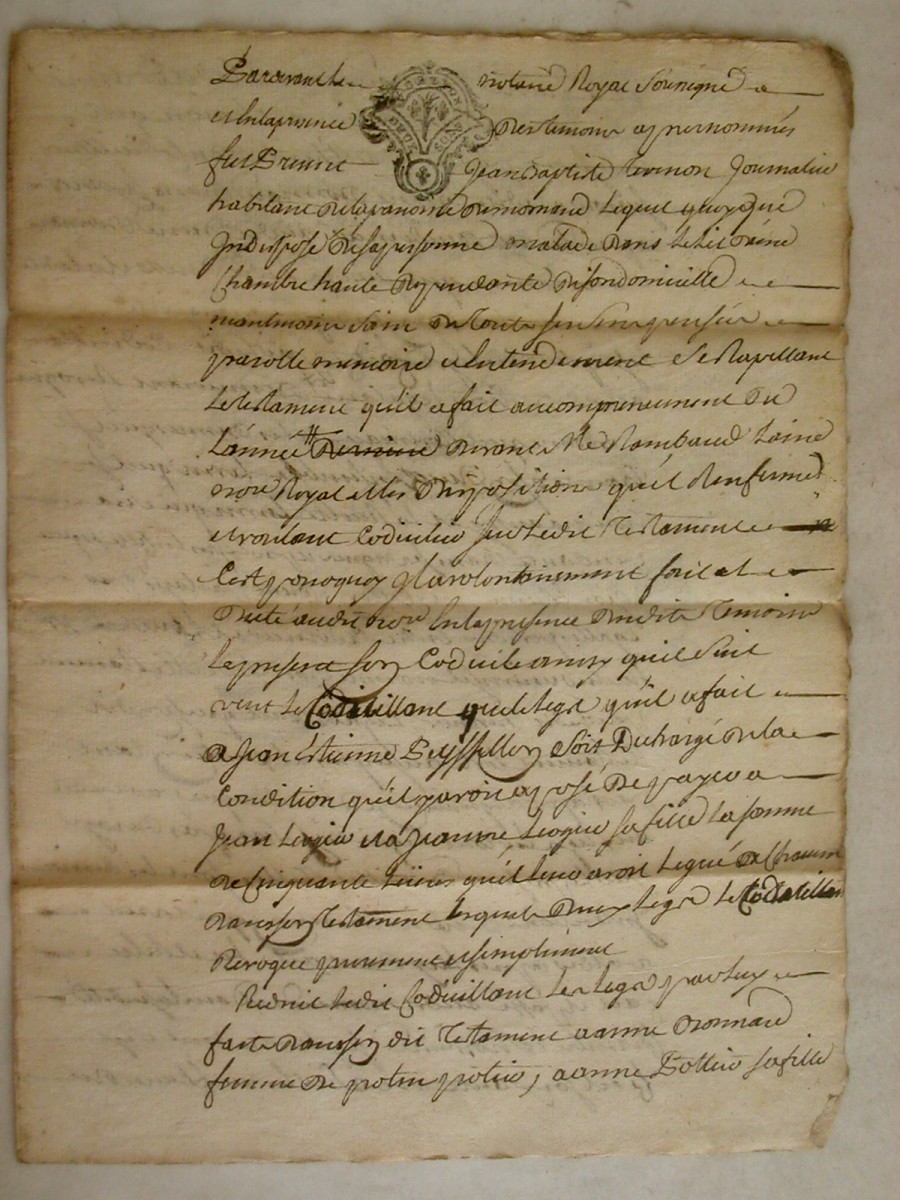 Pardevant le notaire Royal Sousigné
et en la presence des temoins apres nommés
fut Present Jean Baptiste Journalier
habitant de la paroisse de mornand lequel quoyque
Indisposé de sa personne malade dans le lit d'une
Chambre haute dependante de son domicille
neantmoins sain de touts ses sens pensée
parolle memoire et entendement se Rapellant
le testament qu'il a fait au commencement de
L'année derniere devant Me Rambaud L'ainé
nore Royal et les dispositions qu'il Renferme
et voulant Codiciller sur ledit Testament
C'est pourquoy il a volontairement fait et
dicté audit nore en la presence desdits Temoins
le present son Codicile ainsy qu'il suit
veut le Codicillant que le legs qu'il a fait
a Jean Estienne Peyssellon soit Decharge de la
Condition qu'il y avoit aposé de payer a
Jean et a Jeanne sa fille la somme
de Cinquante Livres qu'il leur avoit legué a Chacun
dans son Testament lesquels deux legs le Codicillant
Revoque purement et simplement
Reduit ledit Codicillant les legs par luy
faits dans son dit Testament a anne
femme de , a anne sa fille